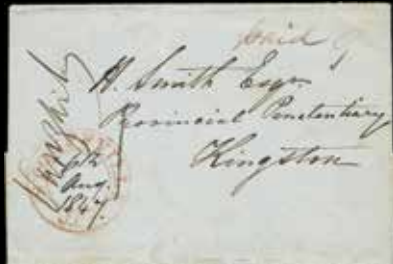 Paid 9
H. Smith Esqr
Provincial Penetentiary
Kingston
6th
Aug.
1847.